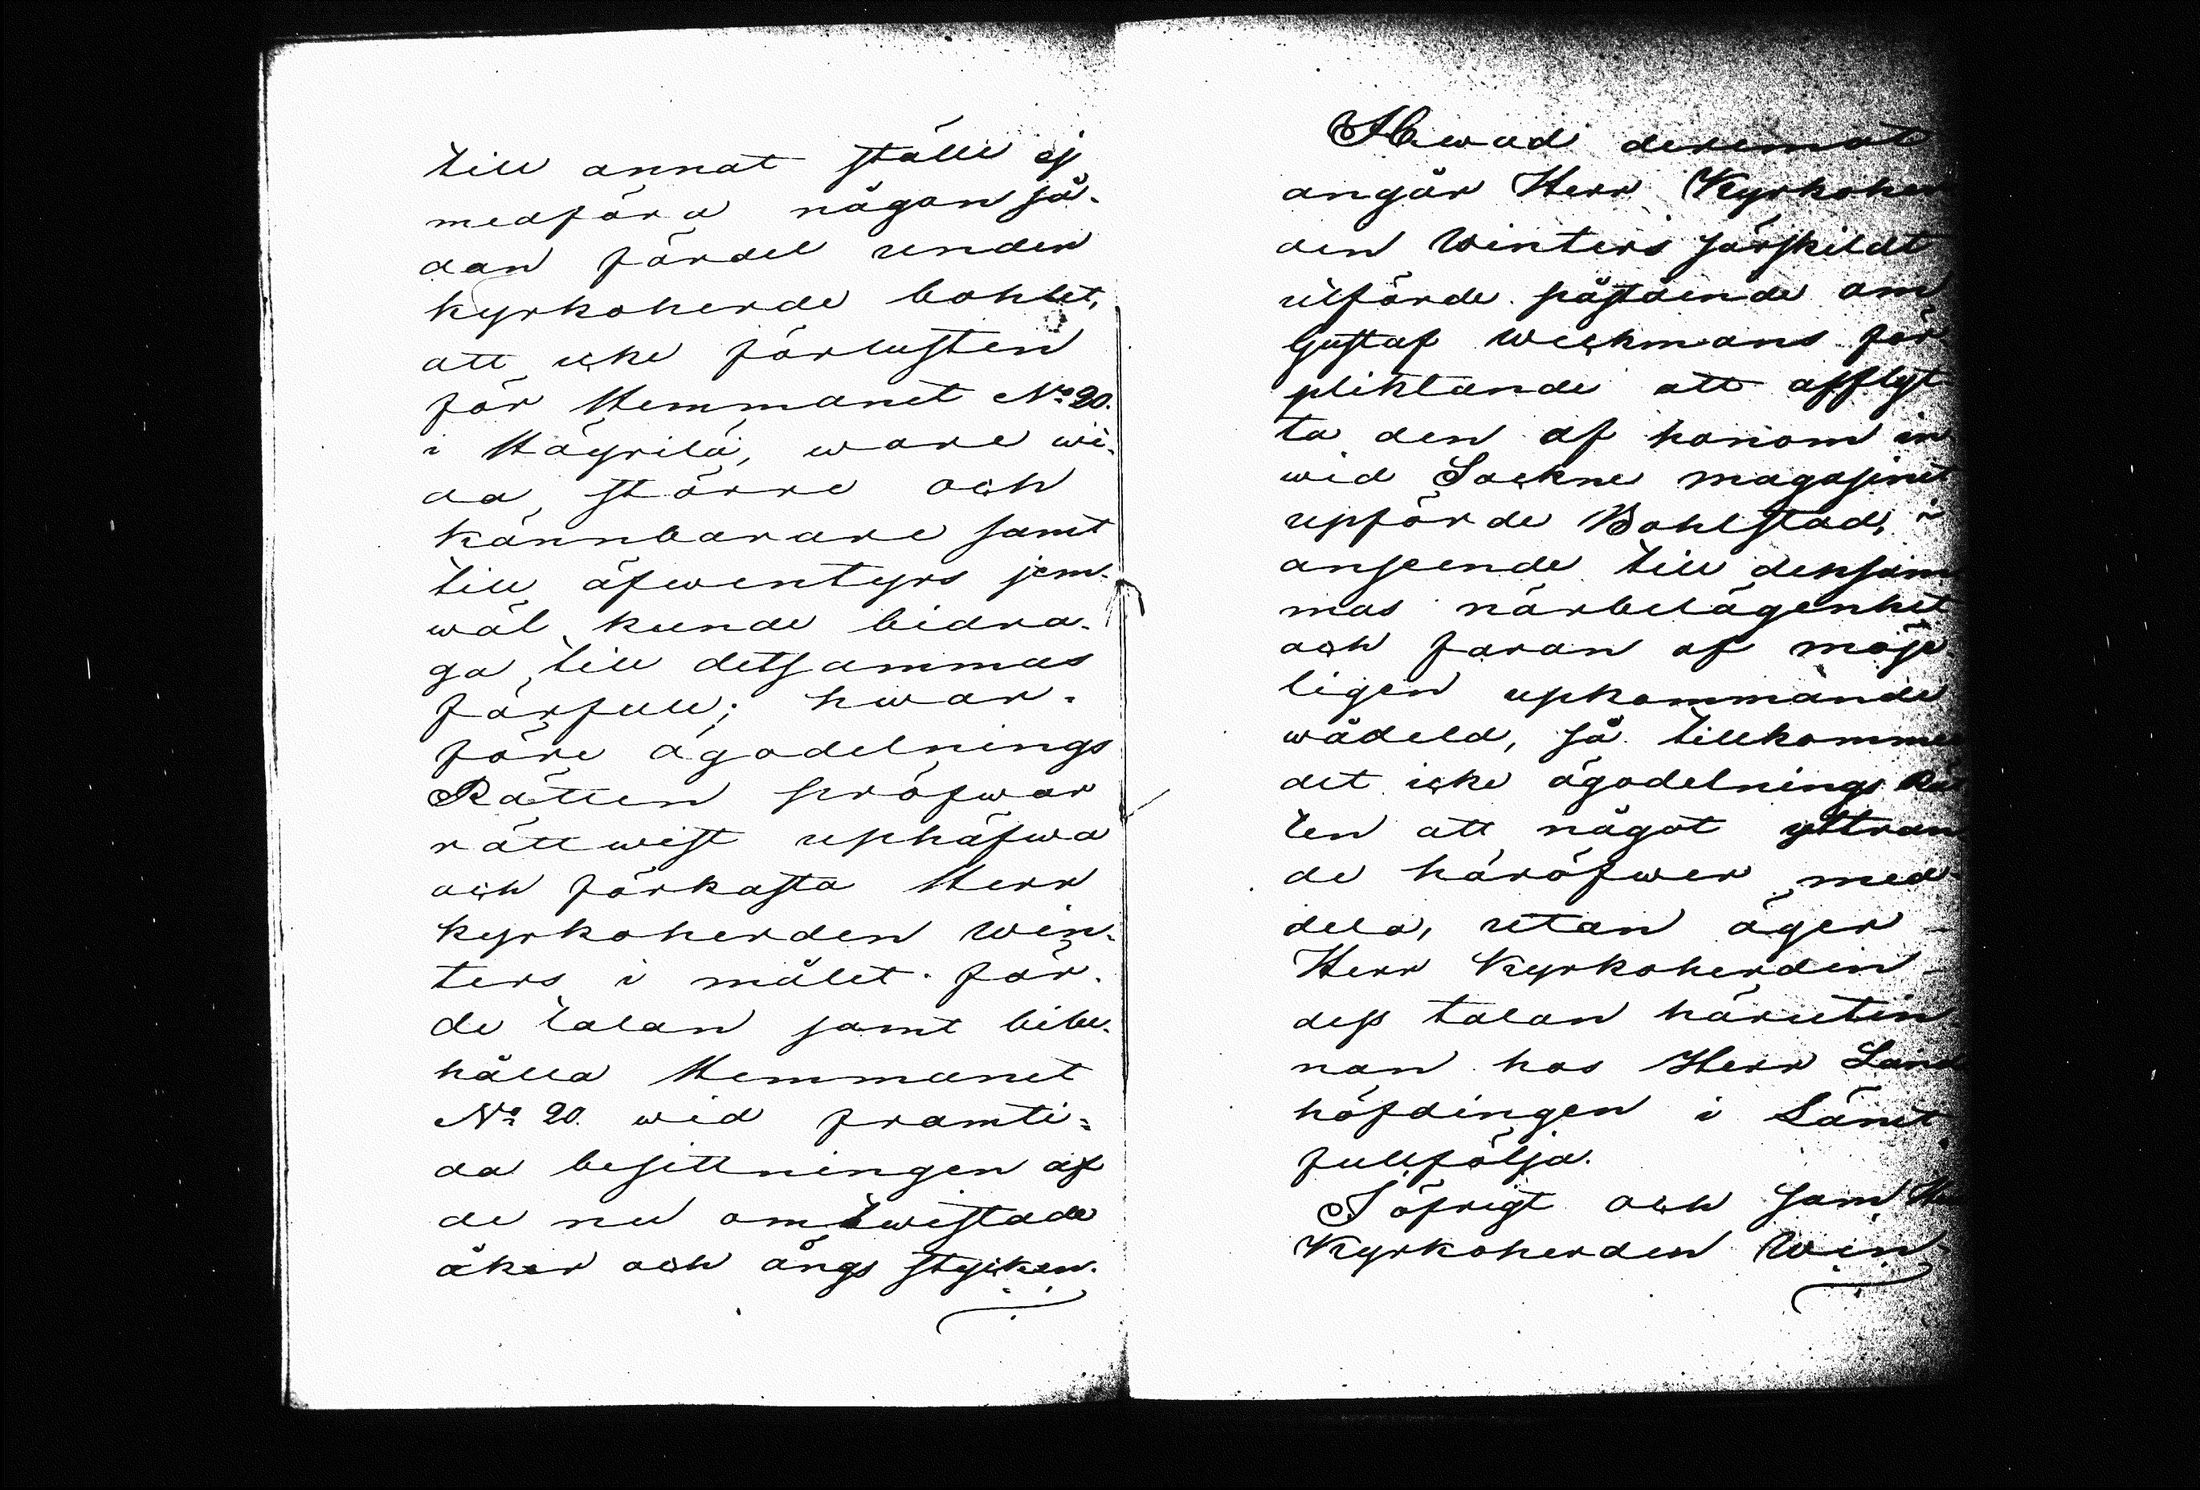 till annat ställe ej
medföra någon så-
dan fördel under
kyrkoherde bohlet,
att icke förlusten
för Hemmanet No 20.
i Häyrilä, wore wi-
da större och
kännbarare samt
till äfwentyrs jem-
wäl kunde bidra-
ga till detsammas
förfull; hwar-
före ägodelnings
Rätten pröfwar
rättwist uphäfwa
och förkasta Herr
kyrkoherden Win-
ters i målet för-
de talan samt bibe-
hålla Hemmanet
No 20. wid framti-
da besittningen af
de nu omtwistade
åker och ängs stycken.
Hwad deremot
angår Herr Kyrkoher
den Winters särskildt
utförde påstående om
Gustaf Weckmans för
pliktande att afflyt
ta den af honom in
wid Sockne magasinet
upförde Bohlstad, i
anseende till densam
mas närbelägenhet
och faran af möje-
ligen upkommande
wådeld, så tillkomme
det icke ägodelnings Rät
ten att något yttran
de häröfwer med-
dela, utan äger
Herr Kyrkoherden
dess talan härutin-
nan hos Herr Land
höfdingen i Länet
fullfölja.
I öfrigt och som Herr
Kyrkoherden Win-